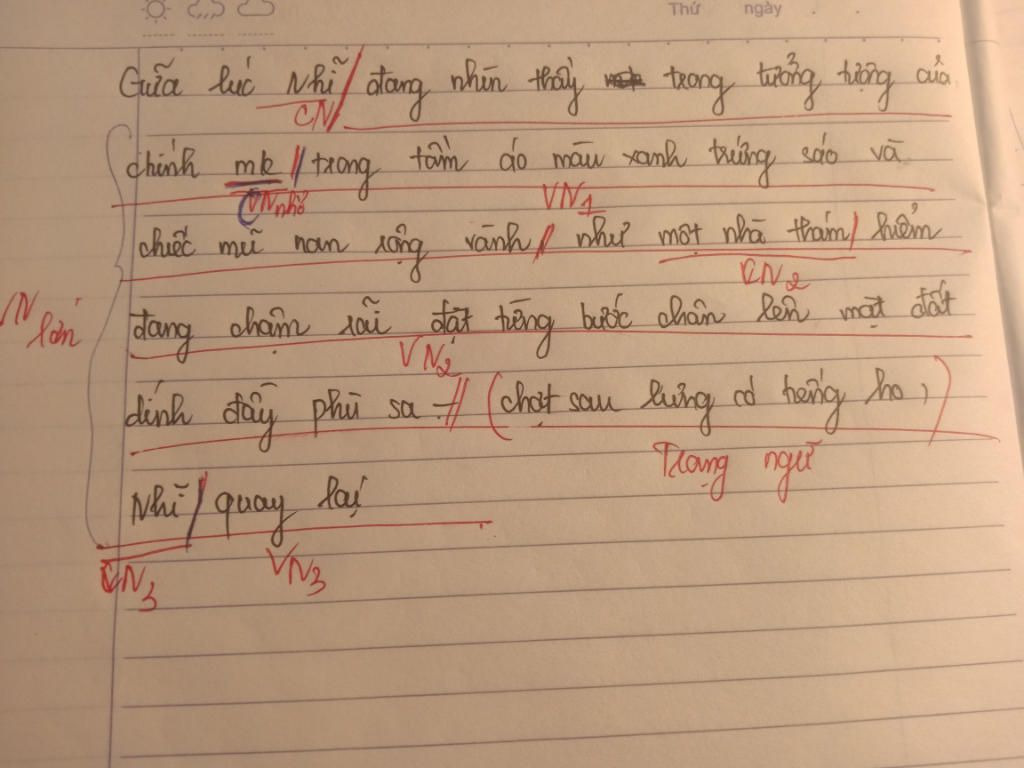 Thứ ngày
Giữa lúc Nhĩ / đang nhìn thấy trong tưởng tượng của
CN
chính mk // trong tấm áo màu xanh trứng sáo và
VN nhỏ VN1
chiếc mũ nan rộng vành // như một nhà thám / hiểm
CN2
đang chậm rãi đặt từng bước chân lên mặt đất
VN lớn
VN2
dính đầy phù sa - // (chợt sau lưng có tiếng ho,)
Trạng ngữ
Nhĩ / quay lại
CN3 VN3